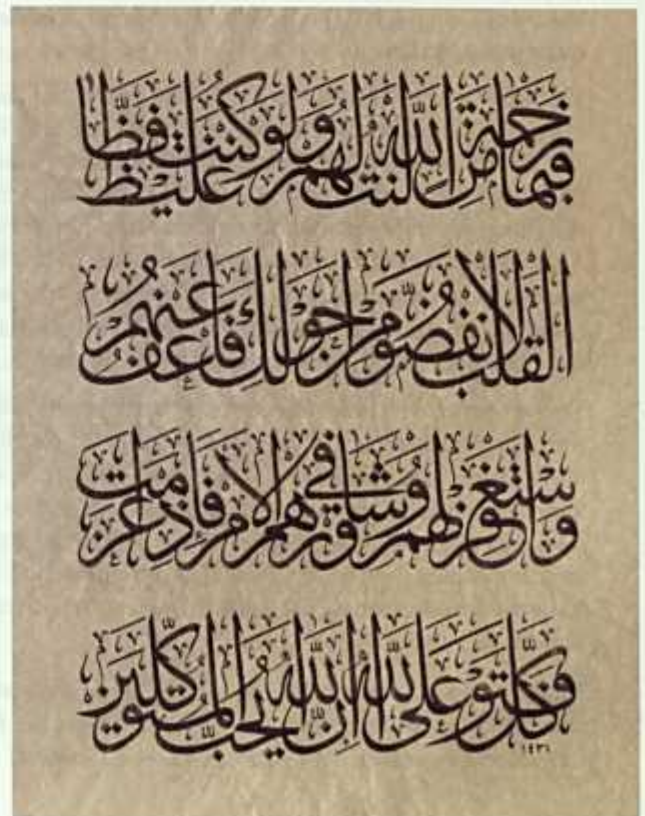 فبما رحمة من الله لنت لهم ولو كنت فظا غليظ
القلب لانفضوا من حولك فاعف عنهم
واستغفر لهم وشاورهم في الأمر فإذا عزمت
فتوكل على الله إن الله يحب المتوكلين
١٤٣١